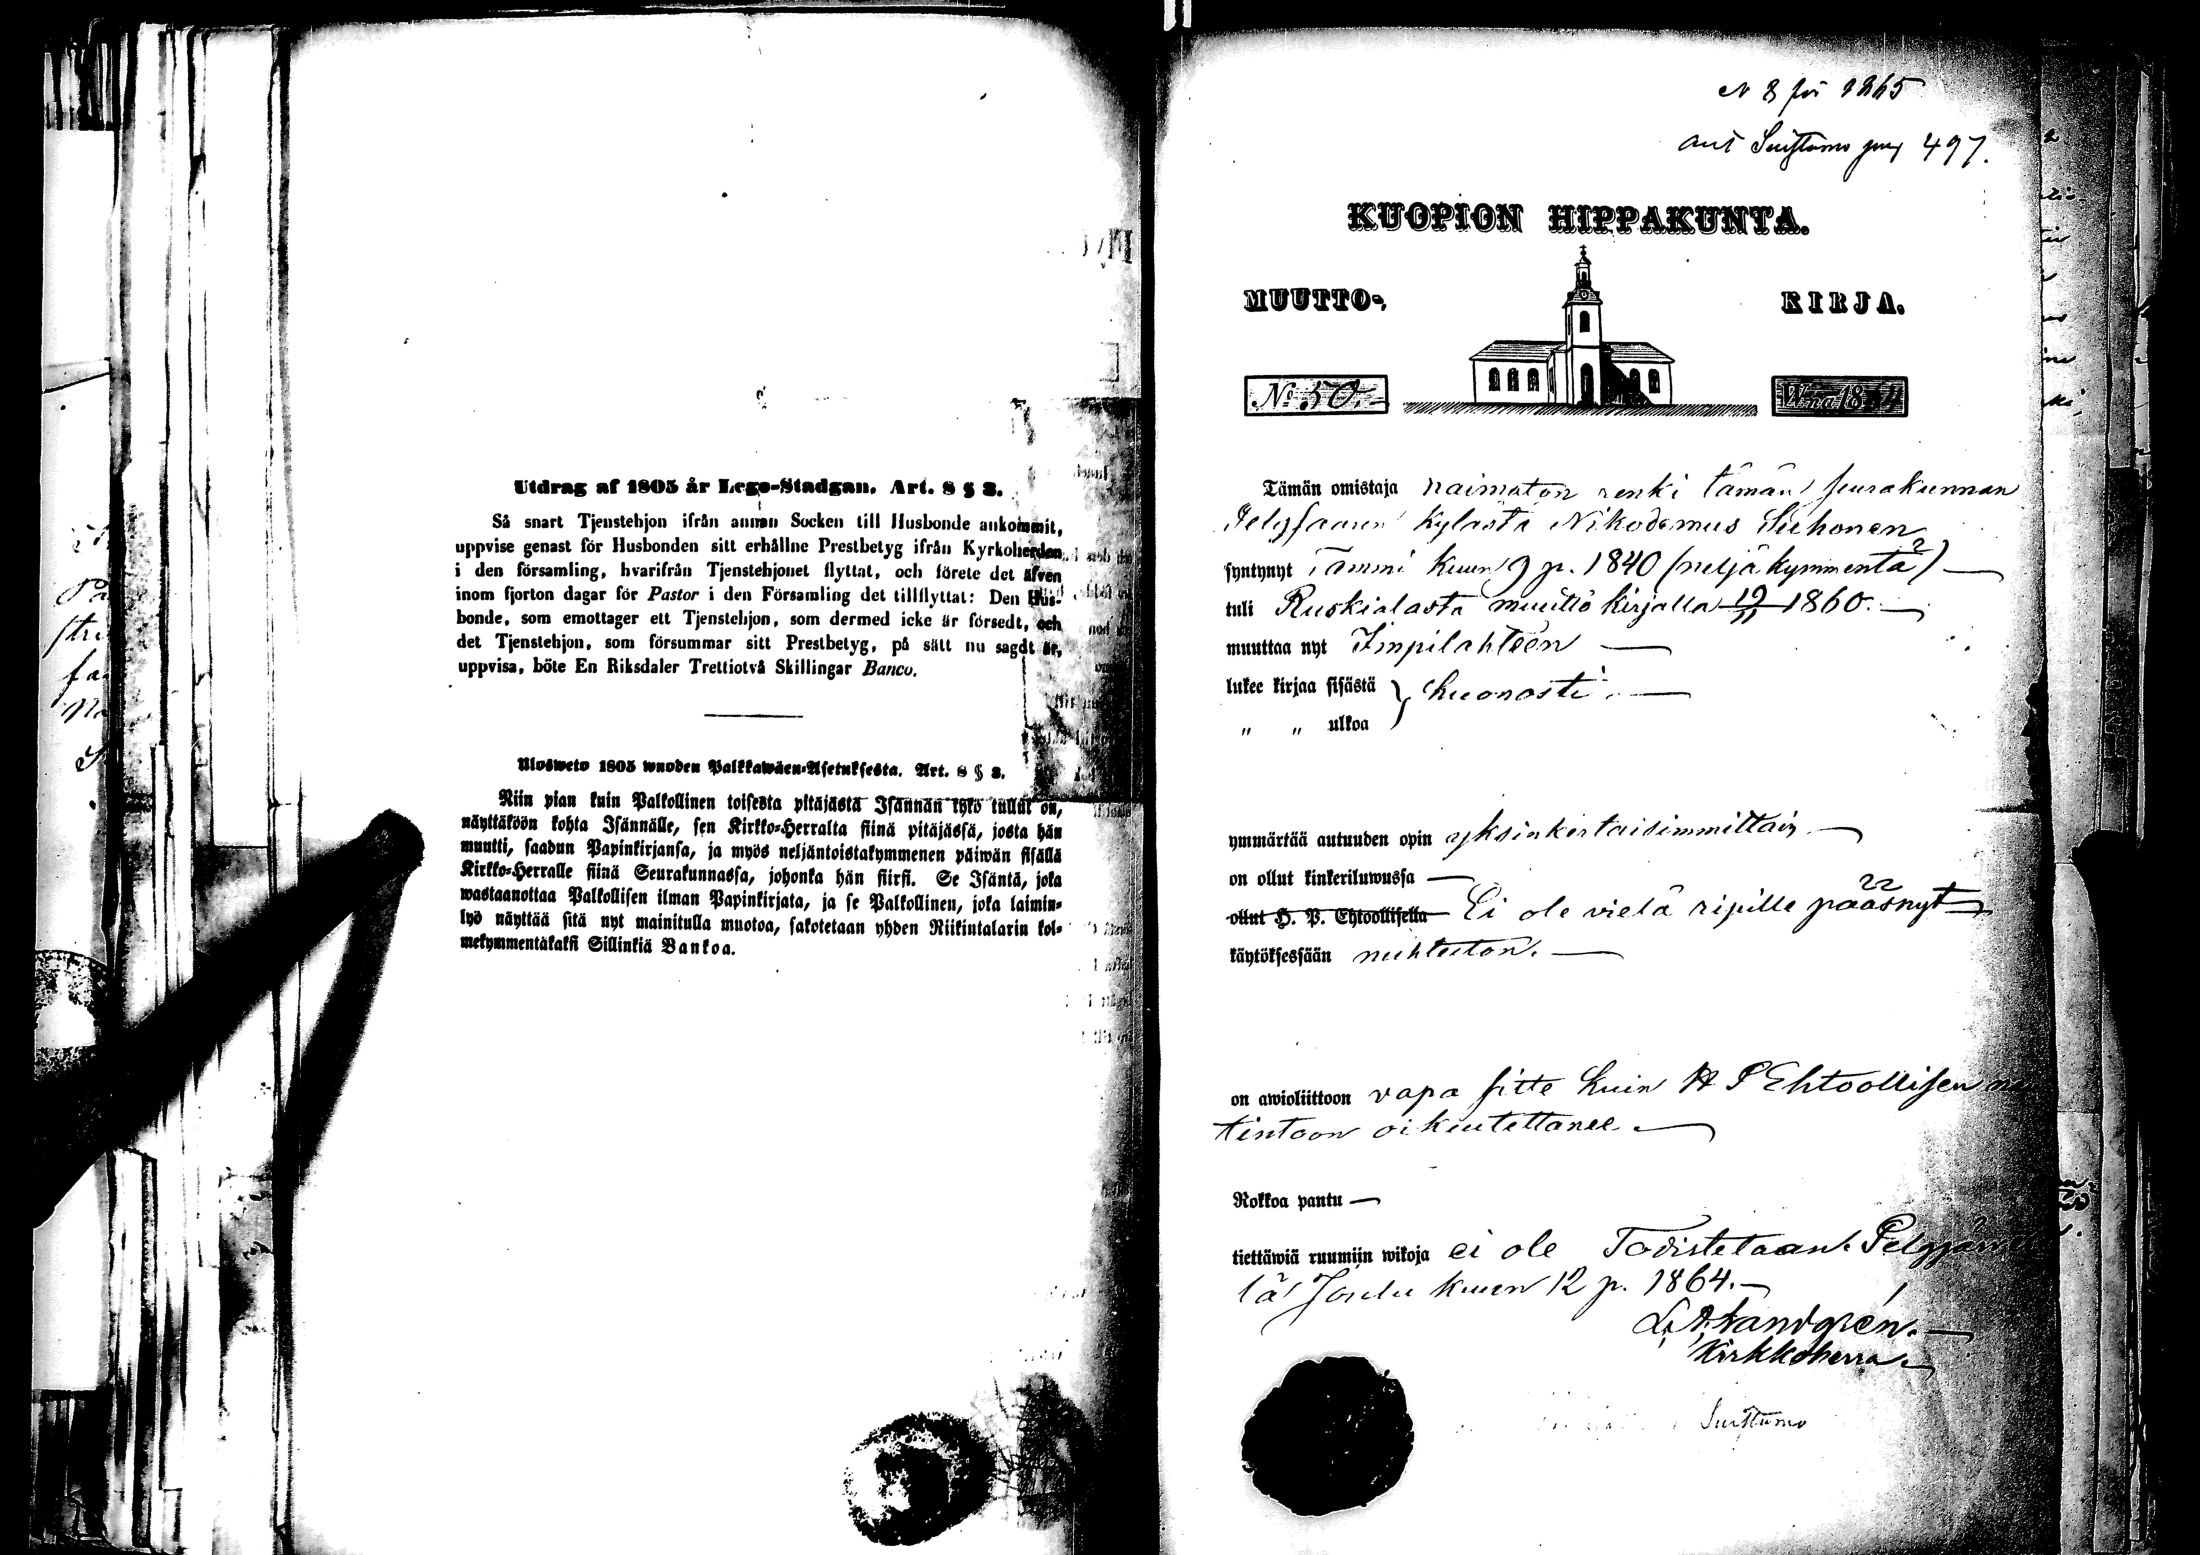 Utdrag af 1805 år Lego-Stadgan. Art. 8 § 3.
Så snart Tjenstehjon ifrån annan Socken till Husbonde ankommit,
uppvise genast för Husbonden sitt erhållne Prestbetyg ifrån Kyrkoherden
i den församling, hvarifrån Tjenstehjonet flyttat, och förete det äfven
inom fjorton dagar för Pastor i den Församling det tillflyttat: Den Hus-
bonde, som emottager ett Tjenstehjon, som dermed icke är försedt, och
det Tjenstehjon, som försummar sitt Prestbetyg, på sätt nu sagdt är,
uppvisa, böte En Riksdaler Trettiotvå Skillingar Banco.
Ulosweto 1805 wuoden Palkkawäen-Asetuksesta. Art. 8 § 3.
Niin pian kuin Palkollinen toisesta pitäjästä Isännän tykö tullut on,
näyttäköön kohta Isännälle, sen Kirkko-Herralta siinä pitäjässä, josta hän
muutti, saadun Papinkirjansa, ja myös neljäntoistakymmenen päiwän sisällä
Kirkko-Herralle siinä Seurakunnassa, johonka hän siirsi. Se Isäntä, joka
wastaanottaa Palkollisen ilman Papinkirjata, ja se Palkollinen, joka laimin-
lyö näyttää sitä nyt mainitulla muotoa, sakotetaan yhden Riikintalarin kol-
mekymmentäkaksi Sillinkiä Bankoa.
N 8 för 1865
497.
KUOPION HIPPAKUNTA.
MUUTTO-, KIRJA.
No 50. W:na 1864
Tämän omistaja naimaton renki tämän seurakunnan
kylästä Nikodemus Siehonen
syntynyt Tammi kuun 9 p. 1840 (neljäkymmentä)
tuli Ruskialasta muutto kirjalla 19/11 1860.
muuttaa nyt Impilahteen
lukee kirjaa sisästä } huonosti.
" " ulkoa
ymmärtää autuuden opin yksinkertaisimmittain
on ollut kinkeriluwussa
ollut H. P. Ehtoollisella Ei ole vielä ripille päässyt
käytöksessään nuhteeton.
on awioliittoon vapa sitte kuin H P Ehtoollisen
tintoon oikeutettanee
Rokkoa pantu
tiettäwiä ruumiin wikoja ei ole Todistetaan. Pelgjärwel
lä Joulu kuun 12 p. 1864.
Landgrén.
Kirkkoherra
Suistamo